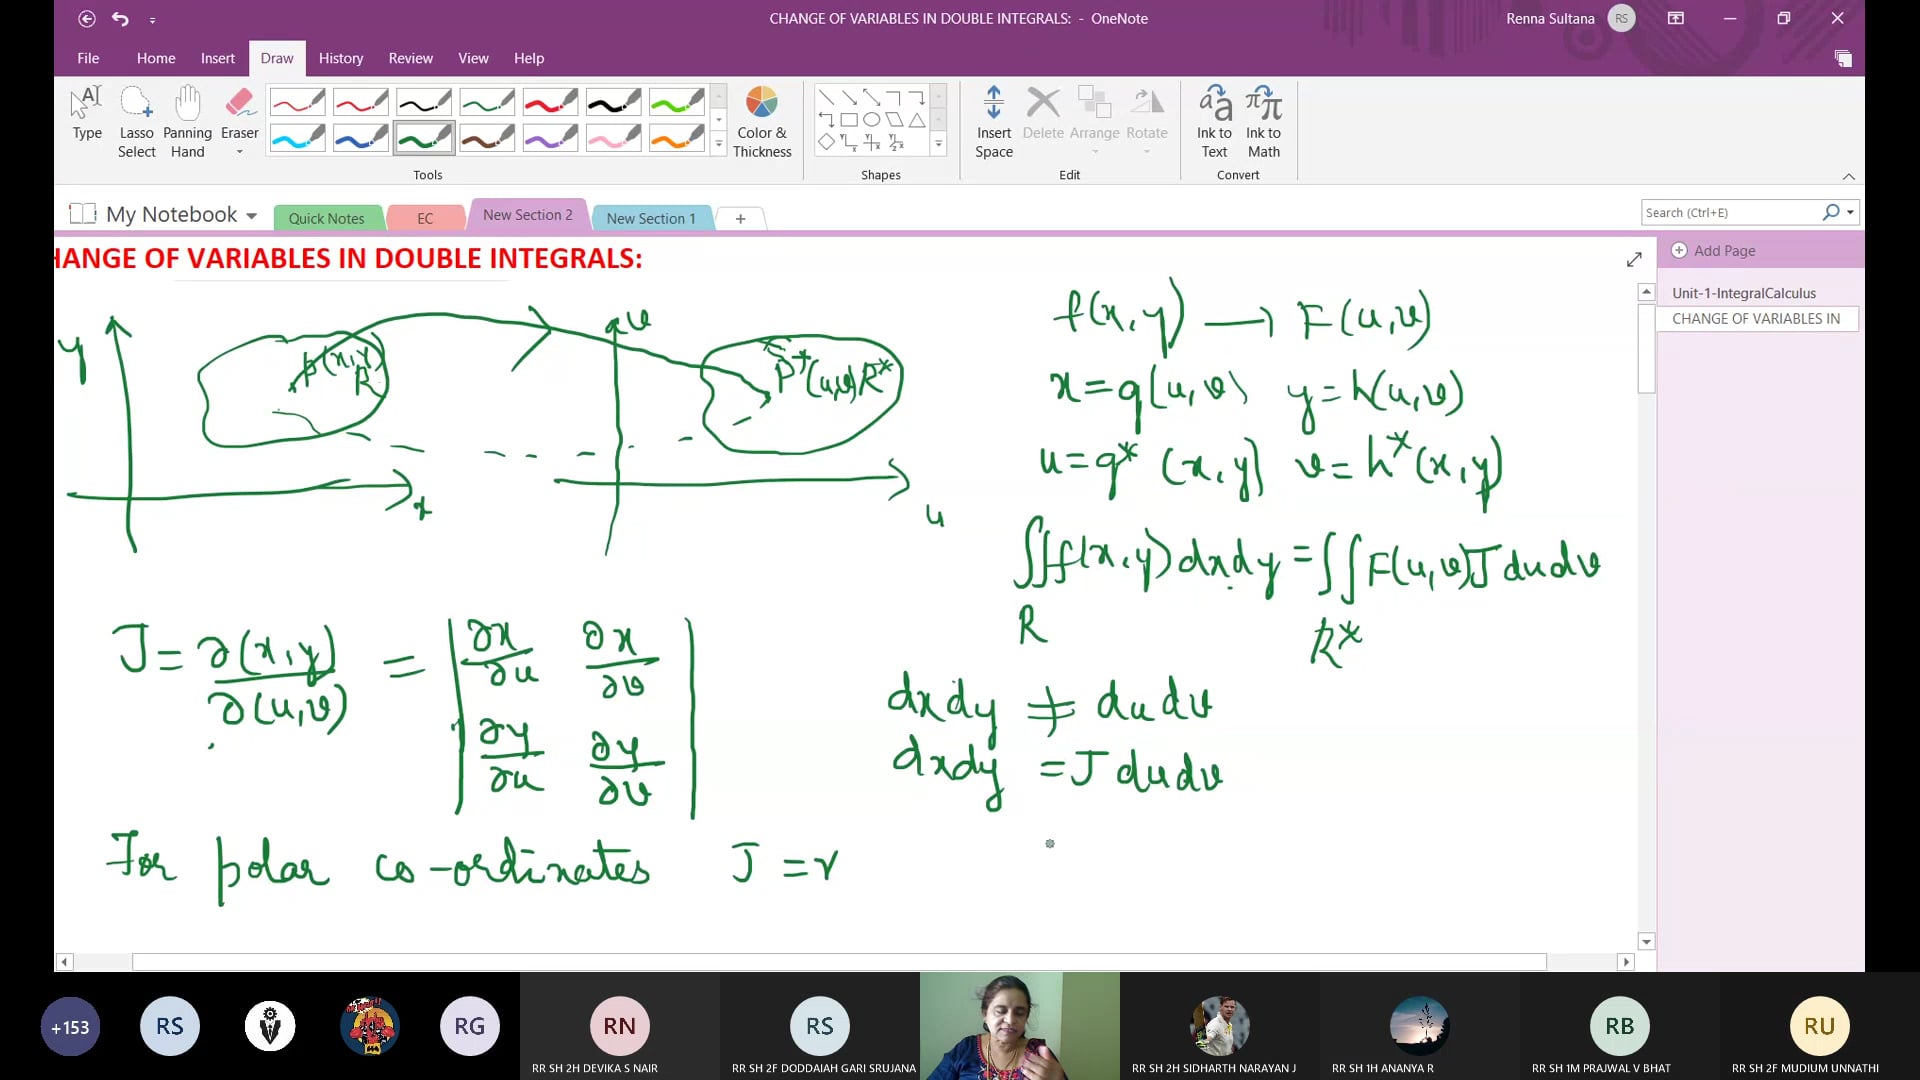 CHANGE OF VARIABLES IN DOUBLE INTEGRALS: - OneNote
Renna Sultana RS
File Home Insert Draw History Review View Help
Type
Lasso Select
Panning Hand
Eraser
Color & Thickness
Insert Space
Delete
Arrange
Rotate
Ink to Text
Ink to Math
Tools
Shapes
Edit
Convert
My Notebook
Quick Notes
EC
New Section 2
New Section 1
+
Search (Ctrl+E)
Add Page
Unit-1-IntegralCalculus
CHANGE OF VARIABLES IN
HANGE OF VARIABLES IN DOUBLE INTEGRALS:
y
P(x,y)
R
x
v
P*(u,v) R*
u
f(x,y) → F(u,v)
x = g(u,v) y = h(u,v)
u = g*(x,y) v = h*(x,y)
∫∫f(x,y)dxdy = ∫∫F(u,v)J du dv
R R*
J = ∂(x,y)/∂(u,v) = | ∂x/∂u ∂x/∂v |
| ∂y/∂u ∂y/∂v |
dxdy ≠ du dv
dxdy = J du dv
For polar co-ordinates J = r
+153
RS
RG
RN
RR SH 2H DEVIKA S NAIR
RS
RR SH 2F DODDAIAH GARI SRUJANA
RR SH 2H SIDHARTH NARAYAN J
RR SH 1H ANANYA R
RB
RR SH 1M PRAJWAL V BHAT
RU
RR SH 2F MUDIUM UNNATHI